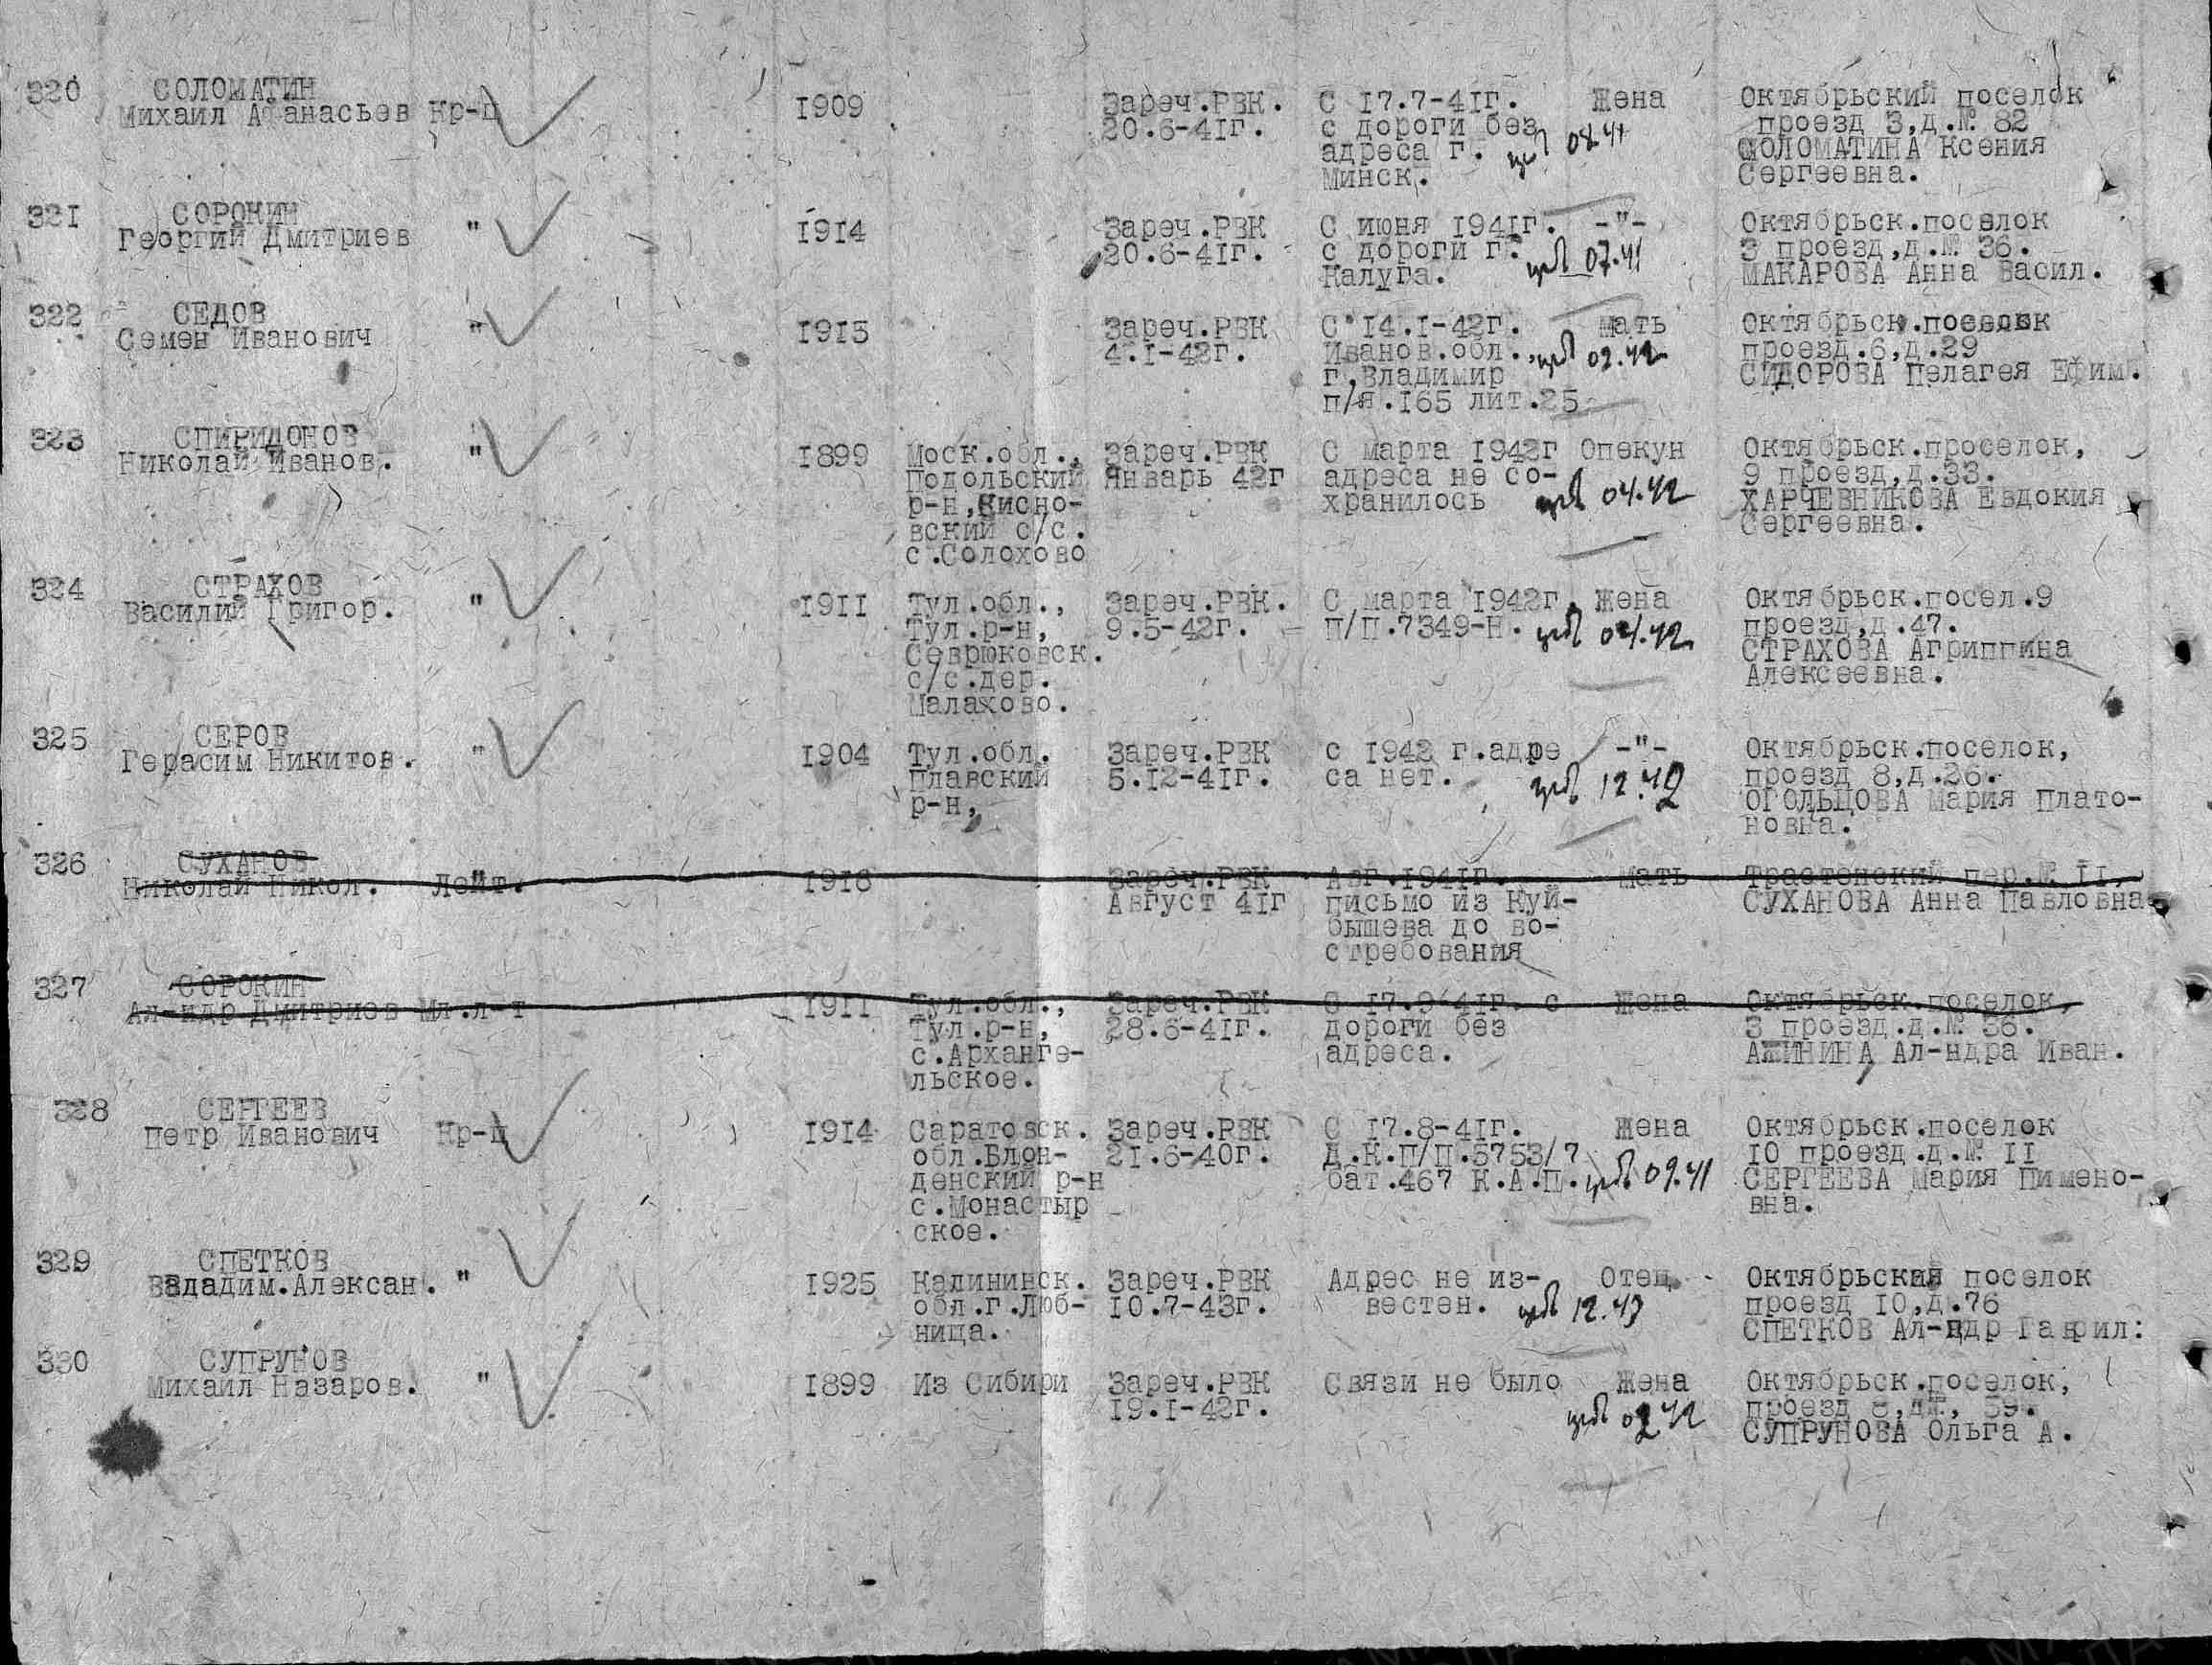 320 СОЛОМАТИН
Михаил Афанасьев Кр-ц 1909 Зареч.РВК. С 17.7-41г. Жена Октябрьский поселок
20.6-41г. с дороги без проезд 3,д.№ 82
адреса г. 08.41 СОЛОМАТИНА Ксения
Минск. Сергеевна.
321 СОРОКИН
Георгий Дмитриев " 1914 Зареч.РВК С июня 1941г. -"- Октябрьск.поселок
20.6-41г. с дороги г. 07.41 3 проезд,д.№ 36.
Калуга. МАКАРОВА Анна Васил.
322 СЕДОВ
Семен Иванович " 1915 Зареч.РВК С 14.1-42г. Мать Октябрьск.поселок
4.1-42г. Иванов.обл., 02.42 проезд.6,д.29
г.Владимир СИДОРОВА Пелагея Ефим.
п/я.165 лит.25
323 СПИРИДОНОВ
Николай Иванов. " 1899 Моск.обл., Зареч.РВК С марта 1942г Опекун Октябрьск.проселок,
Подольский Январь 42г адреса не со- 9 проезд,д.33.
р-н,Кисно- хранилось 04.42 ХАРЧЕВНИКОВА Евдокия
вский с/с. Сергеевна.
с.Солохово
324 СТРАХОВ
Василий Григор. " 1911 Тул.обл., Зареч.РВК. С марта 1942г. Жена Октябрьск.посел.9
Тул.р-н, 9.5-42г. п/п.7349-Н. 04.42 проезд,д.47.
Севрюковск. СТРАХОВА Агриппина
с/с.дер. Алексеевна.
Малахово.
325 СЕРОВ
Герасим Никитов. " 1904 Тул.обл. Зареч.РВК с 1942 г.адре -"- Октябрьск.поселок,
Плавский 5.12-41г. са нет. 12.42 проезд 8,д.26.
р-н, ОГОЛЬЦОВА Мария Плато-
новна.
326 СУХАНОВ
Николай Никол. Лейт. 1918 Зареч.РВК Авг.1941г. Мать пер.№ 11,
Август 41г письмо из Куй- СУХАНОВА Анна Павловна
бышева до во-
стребования
327 СОРОКИН
Ал-ндр Дмитриев Мл.л-т 1911 Тул.обл., Зареч.РВК С 17.9-41г. с Жена Октябрьск.поселок,
Тул.р-н, 28.6-41г. дороги без 3 проезд.д.№ 36.
с.Арханге- адреса. Ал-ндра Иван.
льское.
328 СЕРГЕЕВ
Петр Иванович Кр-ц 1914 Саратовск. Зареч.РВК С 17.8-41г. Жена Октябрьск.поселок
обл.Блон- 21.6-40г. Д.К.П/П.5753/7 10 проезд.д.№ 11
денский р-н бат.467 К.А.П. 09.41 СЕРГЕЕВА Мария Пимено-
с.Монастыр вна.
ское.
329 СПЕТКОВ
Владим.Алексан. " 1925 Калининск. Зареч.РВК Адрес не из- Отец Октябрьский поселок
обл.г.Люб- 10.7-43г. вестен. 12.43 проезд 10,д.76
ница. СПЕТКОВ Ал-ндр Гаврил:
330 СУПРУНОВ
Михаил Назаров. " 1899 Из Сибири Зареч.РВК Связи не было Жена Октябрьск.поселок,
19.1-42г. 02.42 проезд 8, 59.
СУПРУНОВА Ольга А.